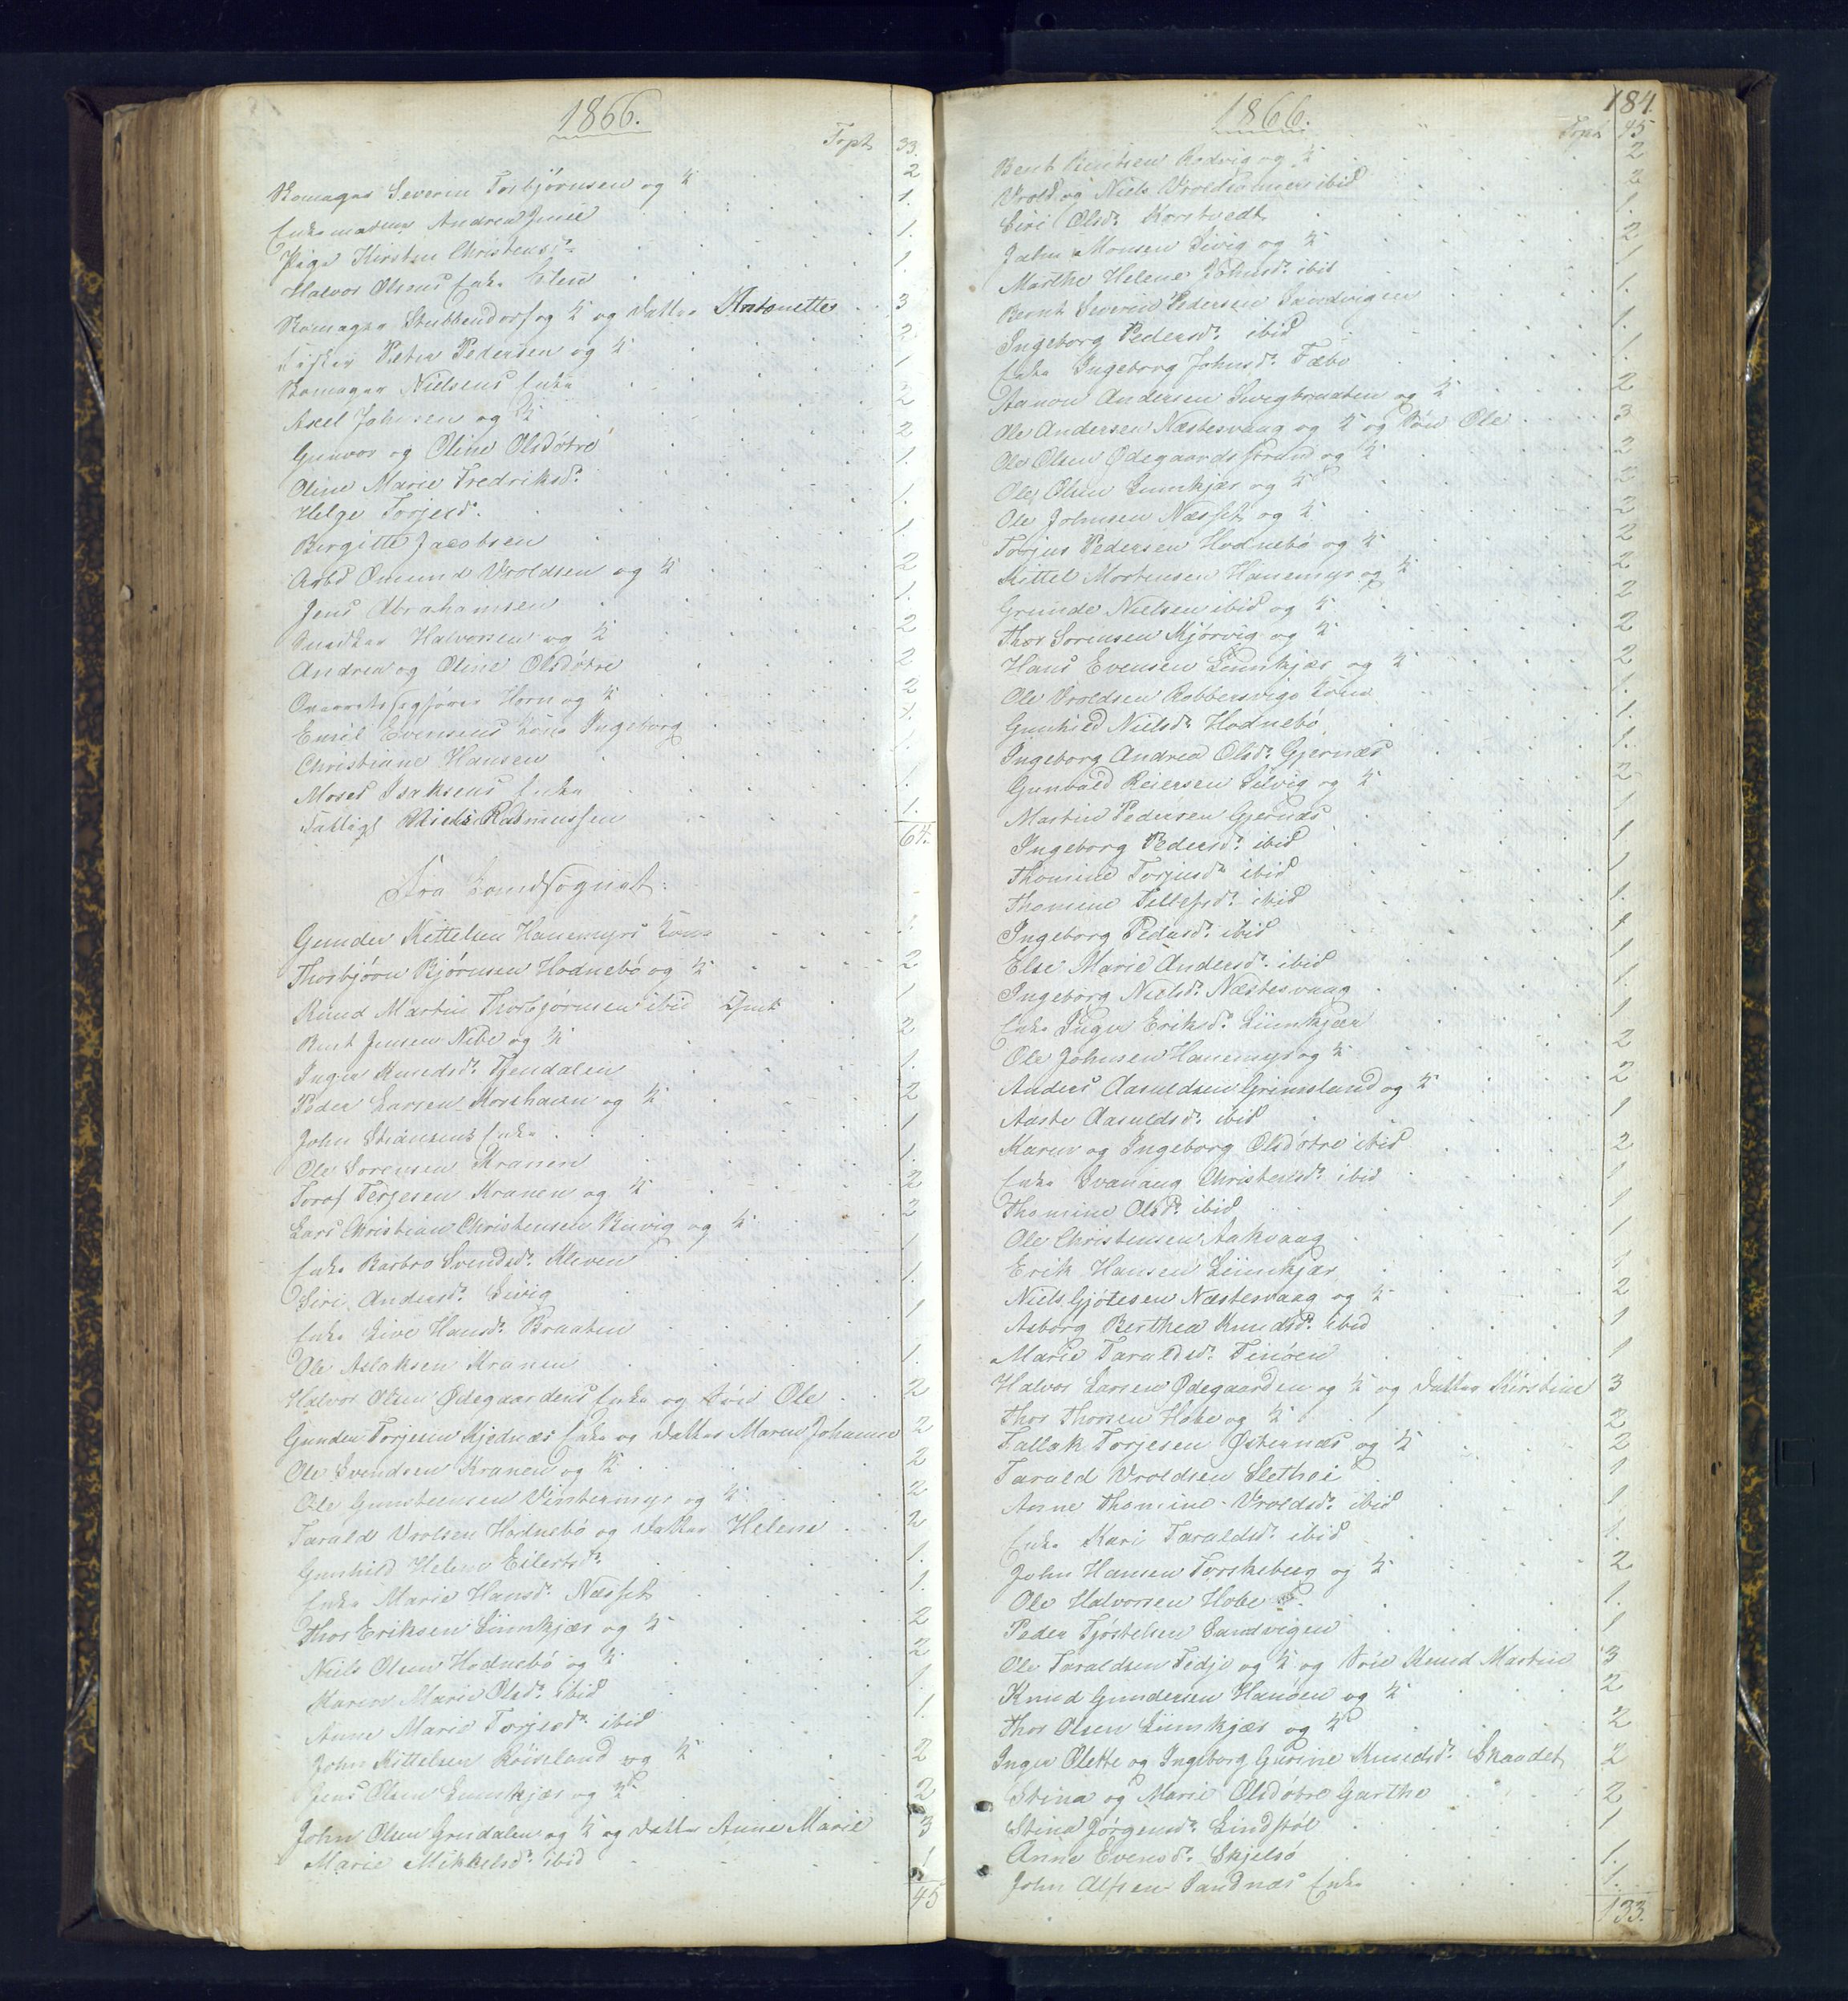 1866.
Trpt 33.
Skomager Severin Torbjørnsen og K 2
Enkemadme Andrea Juule 1.
Pige Kirsten Christensdr 1.
Halvor Olsens Enke Elen 1.
Skomager Stubbendorf og K og Datter Antonette 3
Fisker Peter Pedersen og K 2.
Skomager Nielsens Enke 1
Axel Johnsen og K 2
Gunvor og Oline Olsdøtre 2
Oline Marie Fredriksdr 1.
Helge Torjesdr 1.
Birgitte Jacobsen 1.
Arbd Omund Vroldsen og K 2
Jens Abrahamsen 1.
Snedker Halvorsen og K 2
Andrea og Oline Olsdøtre 2
Overretssagfører Horn og K 2
Emil Evensens Kone Ingeborg 1.
Christiane Hansen 1.
Moses Isaksens Enke 1.
Fattigl Niels Rasmussen 1.
64.
Fra Landsognet:
Gunder Kittelsen Hanemyrs Kone 1.
Thorbjørn Bjørnsen Hodnebø og K 2
Knud Martin Thorbjørnsen ibid 1
Bent Jensen Nibe og K 2
Inger Knudsdr Tjendalen 1.
Peder Larsen Korshavn og K 2
John Stiansens Enke 1
Ole Sørensen Kranen 1.
Torof Terjesen Kranen og K 2
Lars Christian Christensen Buvig og K 2
Enke Barbro Svendsdr Kleven 1
Siri Andersdr Sivig 1.
Enke Live Hansdr Braaten 1
Ole Aslaksen Kranen 1.
Halvor Olsen Ødegaardens Enke og Søn Ole 2
Gunder Torjesen Kjødnæs Enke og Datter Maren Johanne 2
Ole Svendsen Kranen og K 2
Ole Gunsteensen Vintermyr og K 2
Tarald Vrolsen Hodnebø og Datter Helene 2
Gunhild Helene Eilertsdr 1.
Enke Marie Hansdr Næsset 1.
Thor Eriksen Lunkjær og K 2
Niels Olsen Hodnebø og K 2
Karen Marie Olsdr ibid 1.
Anne Marie Torjesdr ibid 1.
John Kittelsen Røiseland og K 2
Jens Olsen Lunkjær og K 2
John Olsen Grudalen og K og Datter Anne Marie 3
Marie Mikkelsdr ibid 1.
45
184.
1866.
Trpt 45
Bent Rodvig og K 2
Vrold og Niels Vroldsønner ibid 2
Siri Olsdr Korstvedt 1.
John Monsen Sivig og K 2
Marthe Helene Johnsdr ibid 1
Bernt Severin Pedersen Sandvigen 1.
Ingeborg Pedersdr ibid 1.
Enke Ingeborg Johnsdr Fæbo 1.
Aanon Andersen Sivigbraaten og K 2
Ole Andersen Næstesvaag og K og Søn Ole 3
Ole Olsen Ødegaardsstrand og K 2
Ole Olsen Lunkjær og K 2
Ole Johnsen Næsset og K 2
Torjus Pedersen Hodnebø og K 2
Kittel Mortensen Hanemyr og K 2
Grunde Nielsen ibid og K 2
Thor Sørensen Mjørvig og K 2
Hans Evensen Lunkjær og K 2
Ole Vroldsen Robbersvigs Kone 1.
Gunhild Nielsdr Hodnebø 1.
Ingeborg Andrea Olsdr Gjernæs 1.
Gunvald Reiersen Silvig og K 2
Martin Pedersen Gjernæs 1
Ingeborg Pedersdr ibid 1
Thomine Torjusdr ibid 1
Thomine Tellefsdr ibid 1.
Ingeborg Pedersdr ibid 1
Else Marie Andersdr ibid 1
Ingeborg Nielsdr Næstesvaag 1.
Enke Inger Eriksdr Lunkjær 1
Ole Johnsen Hanemyr og K 2
Anders Aasuldsen Grimsland og K 2
Aaste Aasuldsdr ibid 1
Karen og Ingeborg Olsdøtre ibid 2
Enke Svanaug Christensdr ibid 1
Thomine Olsdr ibid 1
Ole Christensen Aakvaag 1
Erik Hansen Lunkjær 1
Niels Gjøtesen Næstesvaag og K 2
Asborg Berthea Knudsdr ibid 1
Marie Taraldsdr Finøen 1
Halvor Larsen Ødegaarden og K og Datter Kirstine 3
Thor Thorsen Hobe og K 2
Tallak Torjesen Østernæs og K 2
Tarald Vroldsen Slethei 1
Anne Thomine Vroldsdr ibid 1
Enke Kari Taraldsdr ibid 1.
John Hansen Torskeberg og K 2
Ole Halvorsen Hobe 1.
Peder Tjøstelsen Sandvigen 1
Ole Taraldsen Fedje og K og Søn Knud Martin 3
Knud Gundersen Hanøen og K 2
Thor Olsen Lunkjær og K 2
Inger Olette og Ingeborg Gurine Knudsdr Skaadet 2
Stina og Marie Olsdøtre Garthe 2
Stina Jørgensdr Lindstøl 1
Anne Evensdr Skjelsø 1.
John Alfsen Sandnæs Enke 1.
133.